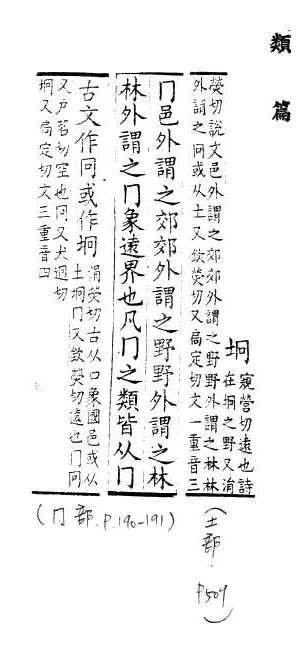 類篇
坰窺營切遠也詩
在坰之野又涓
熒切說文邑外謂之郊郊外謂之野野外謂之林林
外謂之冋或从土又欽熒切又扃定切文一重音三
(土部. P509)
冂邑外謂之郊郊外謂之野野外謂之林
林外謂之冂象遠界也凡冂之類皆从冂
古文作冋或作坰涓熒切古从口象國邑或从
土坰冂又欽熒切遠也冂冋
又戶茗切空也冋又犬迥切
坰又扃定切文三重音四
(冂部. P.190-191)